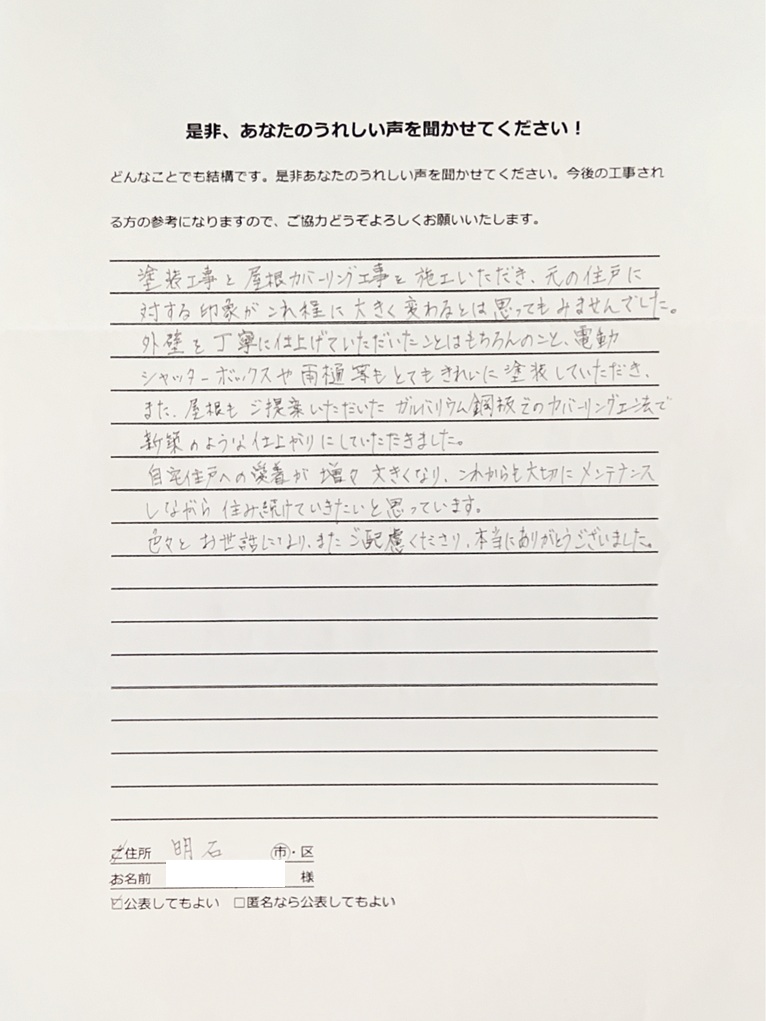 是非、あなたのうれしい声を聞かせてください！
どんなことでも結構です。是非あなたのうれしい声を聞かせてください。今後の工事され
る方の参考になりますので、ご協力どうぞよろしくお願いいたします。
塗装工事と屋根カバーリング工事を施工いただき、元の住戸に
対する印象がこれ程に大きく変わるとは思ってもみませんでした。
外壁を丁寧に仕上げていただいたことはもちろんのこと、電動
シャッターボックスや雨樋等もとてもきれいに塗装していただき、
また、屋根もご提案いただいたガルバリウム鋼板でのカバーリング工法で
新築のような仕上がりにしていただきました。
自宅住戸への愛着が増々大きくなり、これからも大切にメンテナンス
しながら住み続けていきたいと思っています。
色々とお世話になり、またご配慮くださり、本当にありがとうございました。
ご住所 明石 市・区
お名前 様
☑公表してもよい □匿名なら公表してもよい